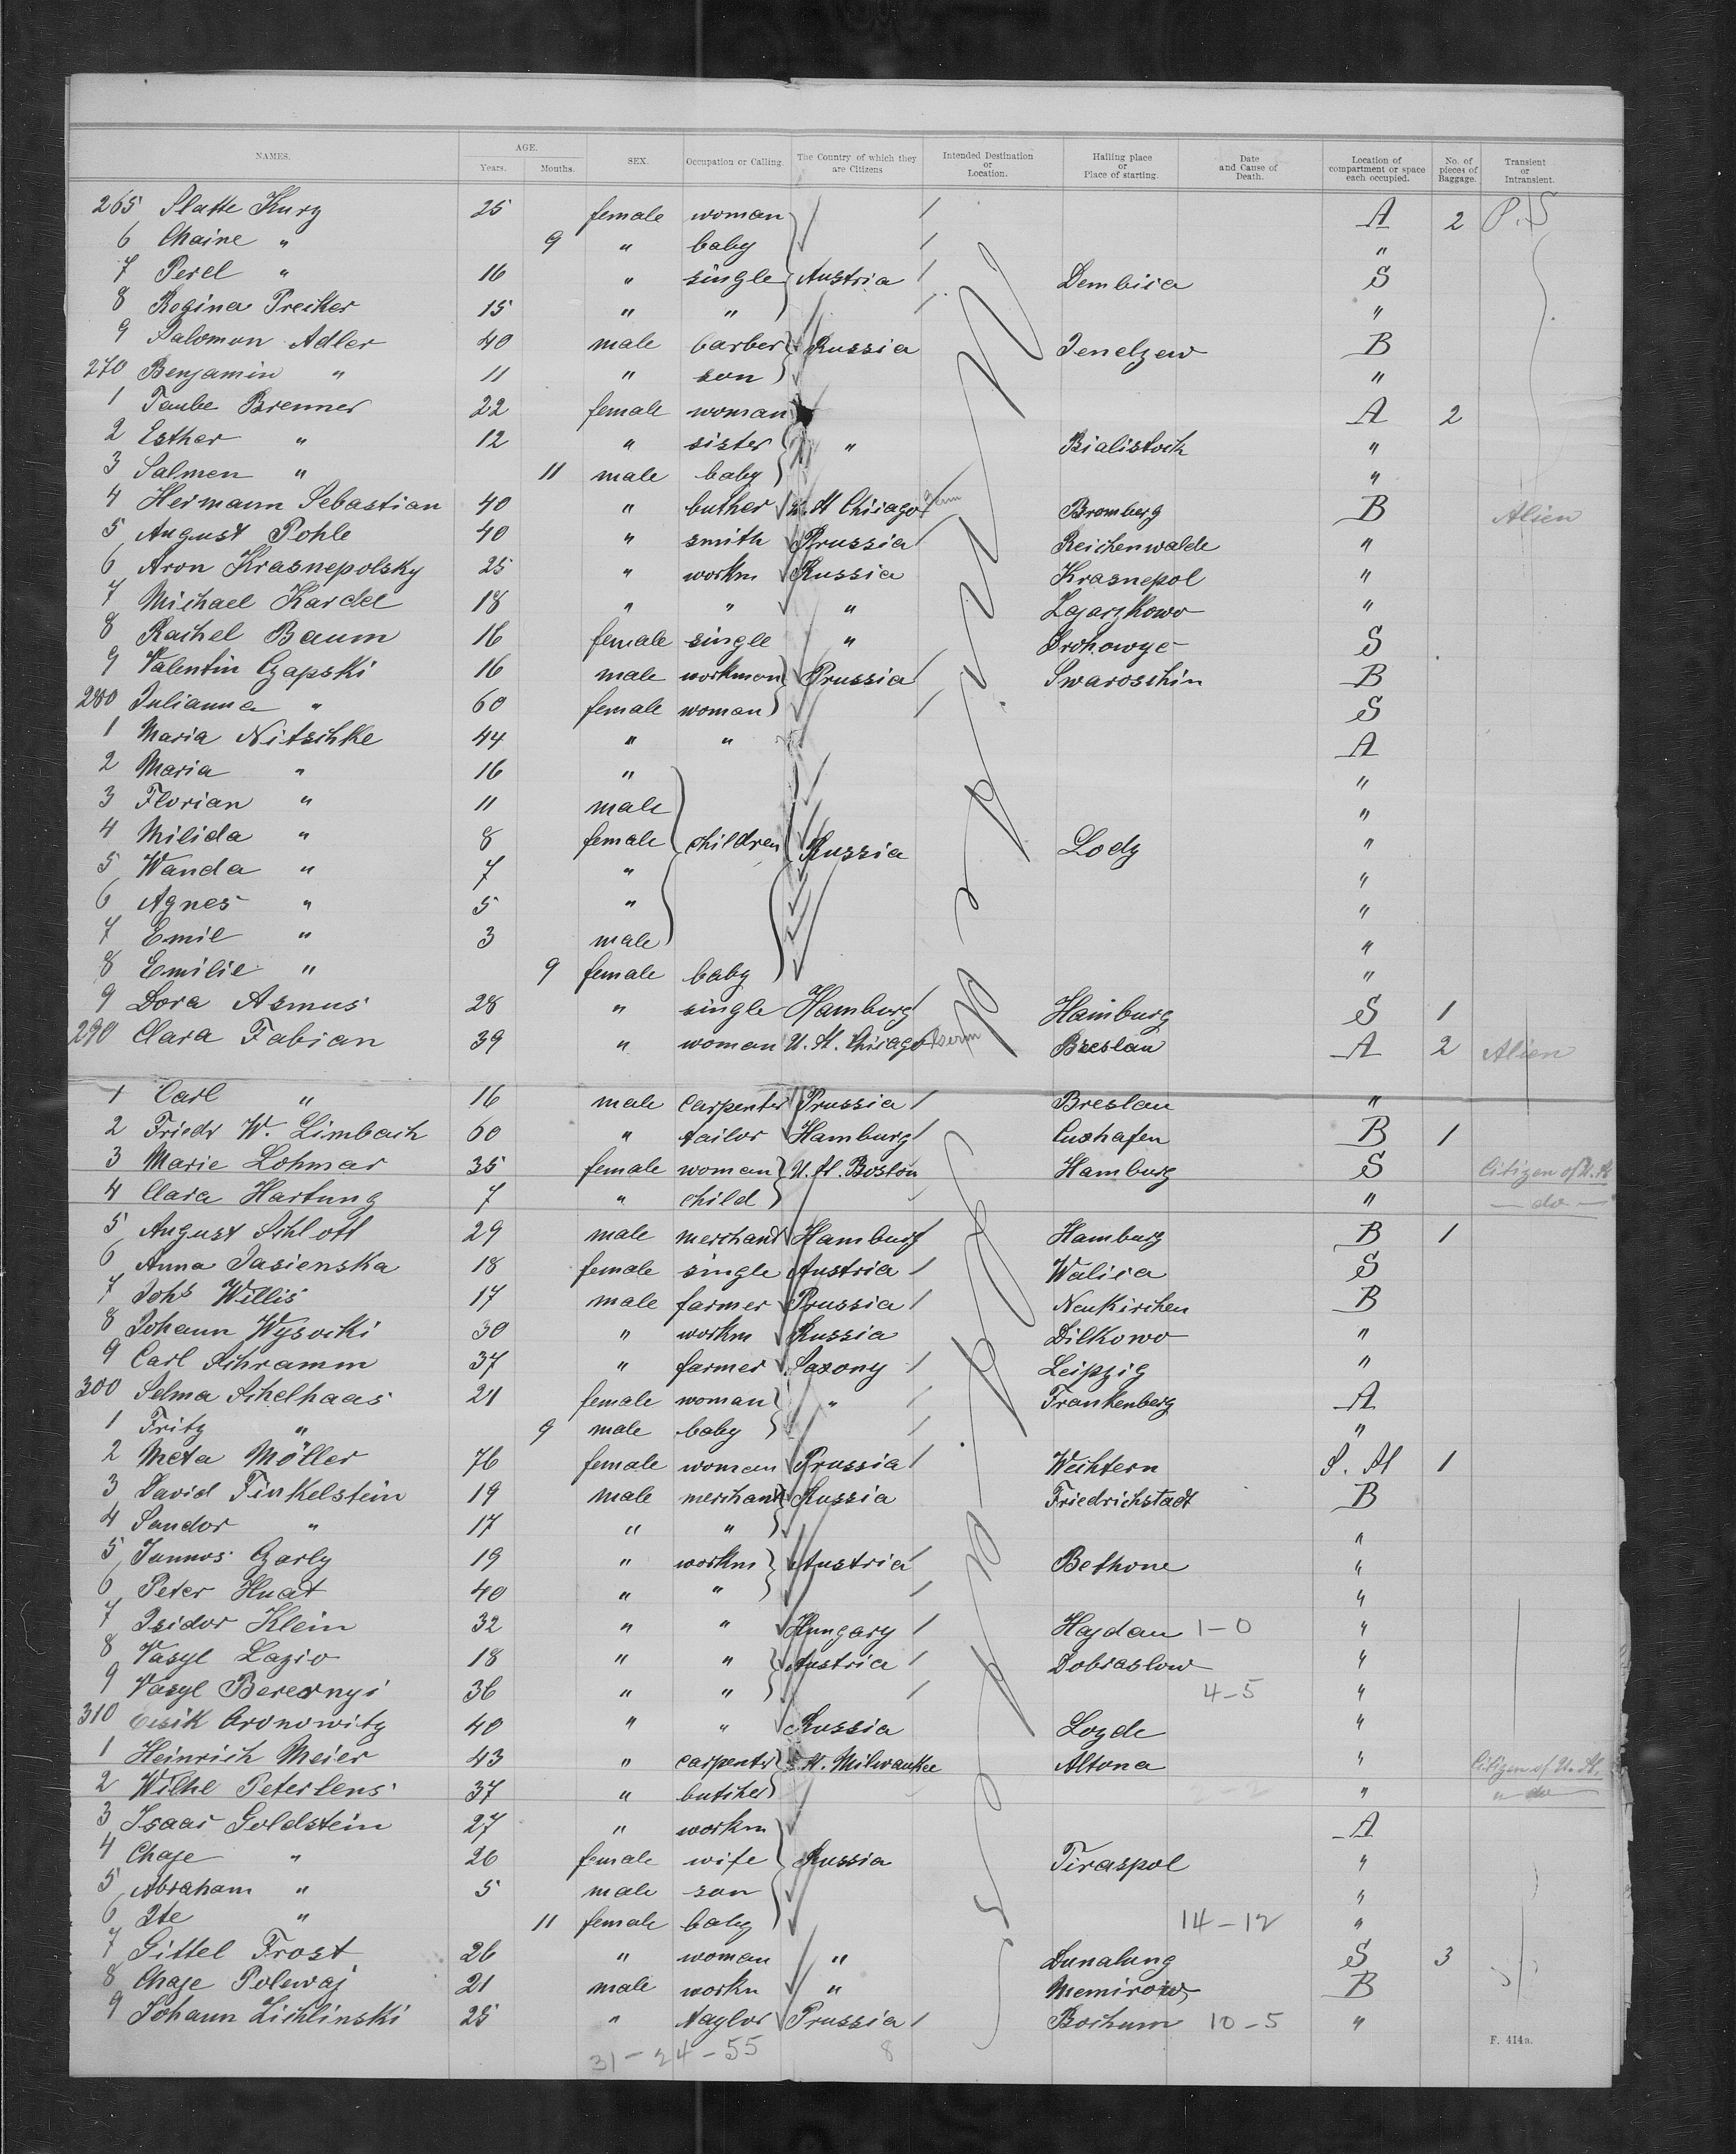 NAMES. AGE. Years. Months. SEX. Occupation or Calling. The Country of which they are Citizens Intended Destination or Location. Hailing place or Place of starting. Date and Cause of Death. Location of compartment or space each occupied. No. of pieces of Baggage. Transient or Intransient.
265 Slatte Kurz 25 female woman A 2 P.S
6 Chaine " 9 " baby "
7 Perel " 16 " single Austria Dembica S
8 Regina Preiker 15 " " "
9 Salomon Adler 40 male barber Russia Jenelzew B
270 Benjamin " 11 " son "
1 Taube Brenner 22 female woman A 2
2 Esther " 12 " sister " Bialistock "
3 Salmen " 11 male baby "
4 Hermann Sebastian 40 " buther U. St Chicago Bromberg B Alien
5 August Pohle 40 " smith Prussia Reichenwalde "
6 Aron Krasnepolsky 25 " workm Russia Krasnepol "
7 Michael Kardel 18 " " " Zgarzkowo "
8 Rachel Baum 16 female single " Drohowyc S
9 Valentin Czapski 16 male workman Prussia Swaroschin B
280 Julianna " 60 female woman S
1 Maria Nitschke 44 " " A
2 Maria " 16 " "
3 Florian " 11 male "
4 Milida " 8 female children Russia Lodz "
5 Wanda " 7 " "
6 Agnes " 5 " "
7 Emil " 3 male "
8 Emilie " 9 female baby "
9 Dora Asmus 28 " single Hamburg Hamburg S 1
290 Clara Fabian 39 " woman U. St. Chicago Breslau A 2 Alien
1 Carl " 16 male carpenter Prussia Breslau "
2 Friedr W. Limbach 60 " tailor Hamburg Cuxhafen B 1
3 Marie Lohmar 35 female woman U. St. Boston Hamburg S Citizen of U. St
4 Clara Hartung 7 " child " — do —
5 August Schlott 29 male merchant Hamburg Hamburg B 1
6 Anna Jasienska 18 female single Austria Walica S
7 Johs Willis 17 male farmer Prussia Neukirchen B
8 Johann Wysocki 30 " workm Russia Dilkowo "
9 Carl Schramm 37 " farmer Saxony Leipzig "
300 Selma Schelhaas 21 female woman " Frankenberg A
1 Fritz " 9 male baby "
2 Meta Möller 76 female woman Prussia Wechtern S. St 1
3 David Finkelstein 19 male merchant Russia Friedrichstadt B
4 Sandor " 17 " " "
5 Junnos Garly 19 " workm Austria Bethone "
6 Peter Huat 40 " " "
7 Isidor Klein 32 " " Hungary Hajdau 1-0 "
8 Vasyl Lazio 18 " " Austria Dobraslow "
9 Vasyl Bereznyi 36 " " 4-5 "
310 Eisik Aronowitz 40 " " Russia Lozde "
1 Heinrich Meier 43 " carpenter U. St. Milwaukee Altona " Citizen of U. St.
2 Wilhe Peterlens 37 " butcher " " do —
3 Isaac Goldstein 27 " workm A
4 Chaje " 26 female wife Russia Tiraspol "
5 Abraham " 5 male son "
6 Ite " 11 female baby 14-12 "
7 Gittel Frost 26 " woman " Dunalung S 3
8 Chaje Polewaj 21 male workn " Memirow B
9 Johann Zichlinski 25 " taylor Prussia Bochum 10-5 "
31-24-55 8
F. 414a.